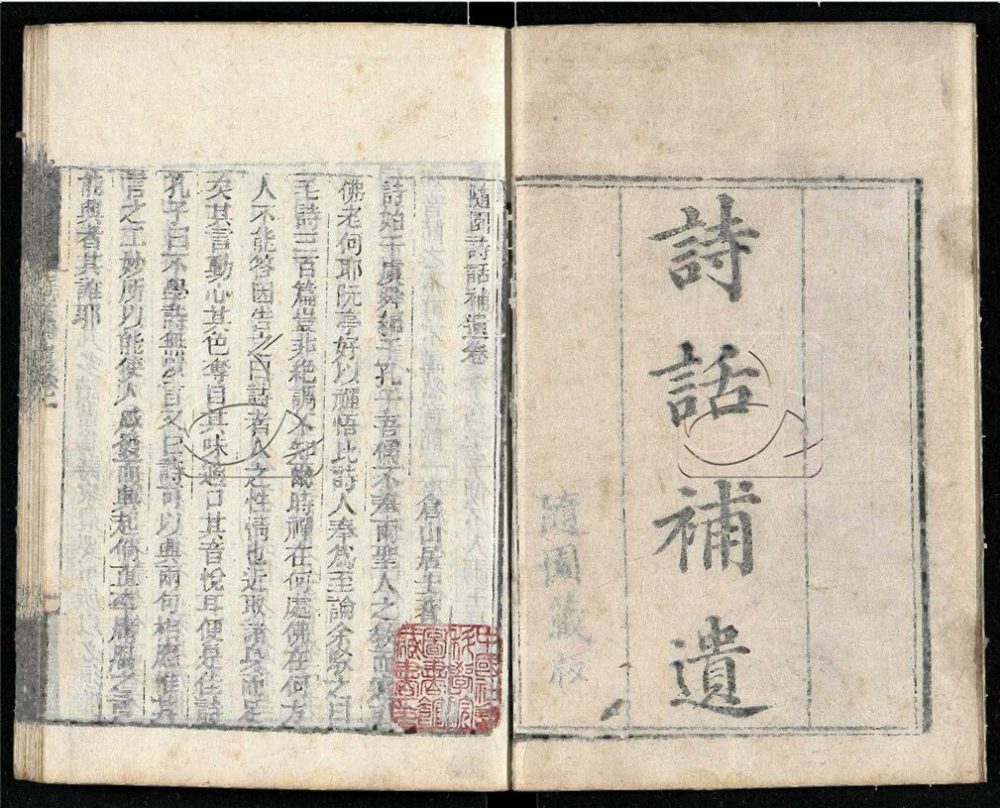 詩話補遺
隨園藏板
隨園詩話補遺卷一
倉山居士著
詩始于虞舜編于孔子吾儒不奉兩聖人之教而遠引
佛老何耶阮亭好以禪悟比詩人奉為至論余駁之曰
毛詩三百篇豈非絕調不知爾時禪在何處佛在何方
人不能答因告之曰詩者人之性情也近取諸身而足
矣其言動心其色奪目其味適口其音悅耳便是佳詩
孔子曰不學詩無以言又曰詩可以興兩句相應惟其
言之工妙所以能使人感發而興起倘直率庸腐之言
能興者其誰耶
中國社會
科學院
圖書館
藏書章